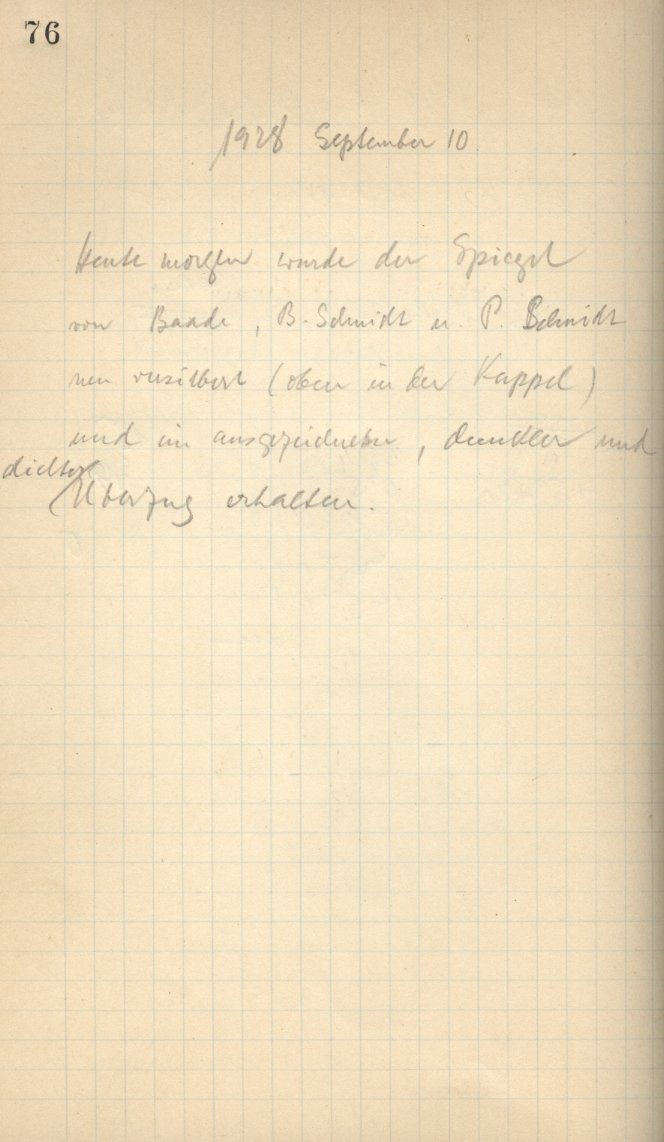 76
1928 September 10
Heute morgen wurde der Spiegel
von Baade, B. Schmidt u. P. Schmidt
neu versilbert (oben in der Kuppel)
und ein ausgezeichneter, dunkler und
dichter
Überzug erhalten.